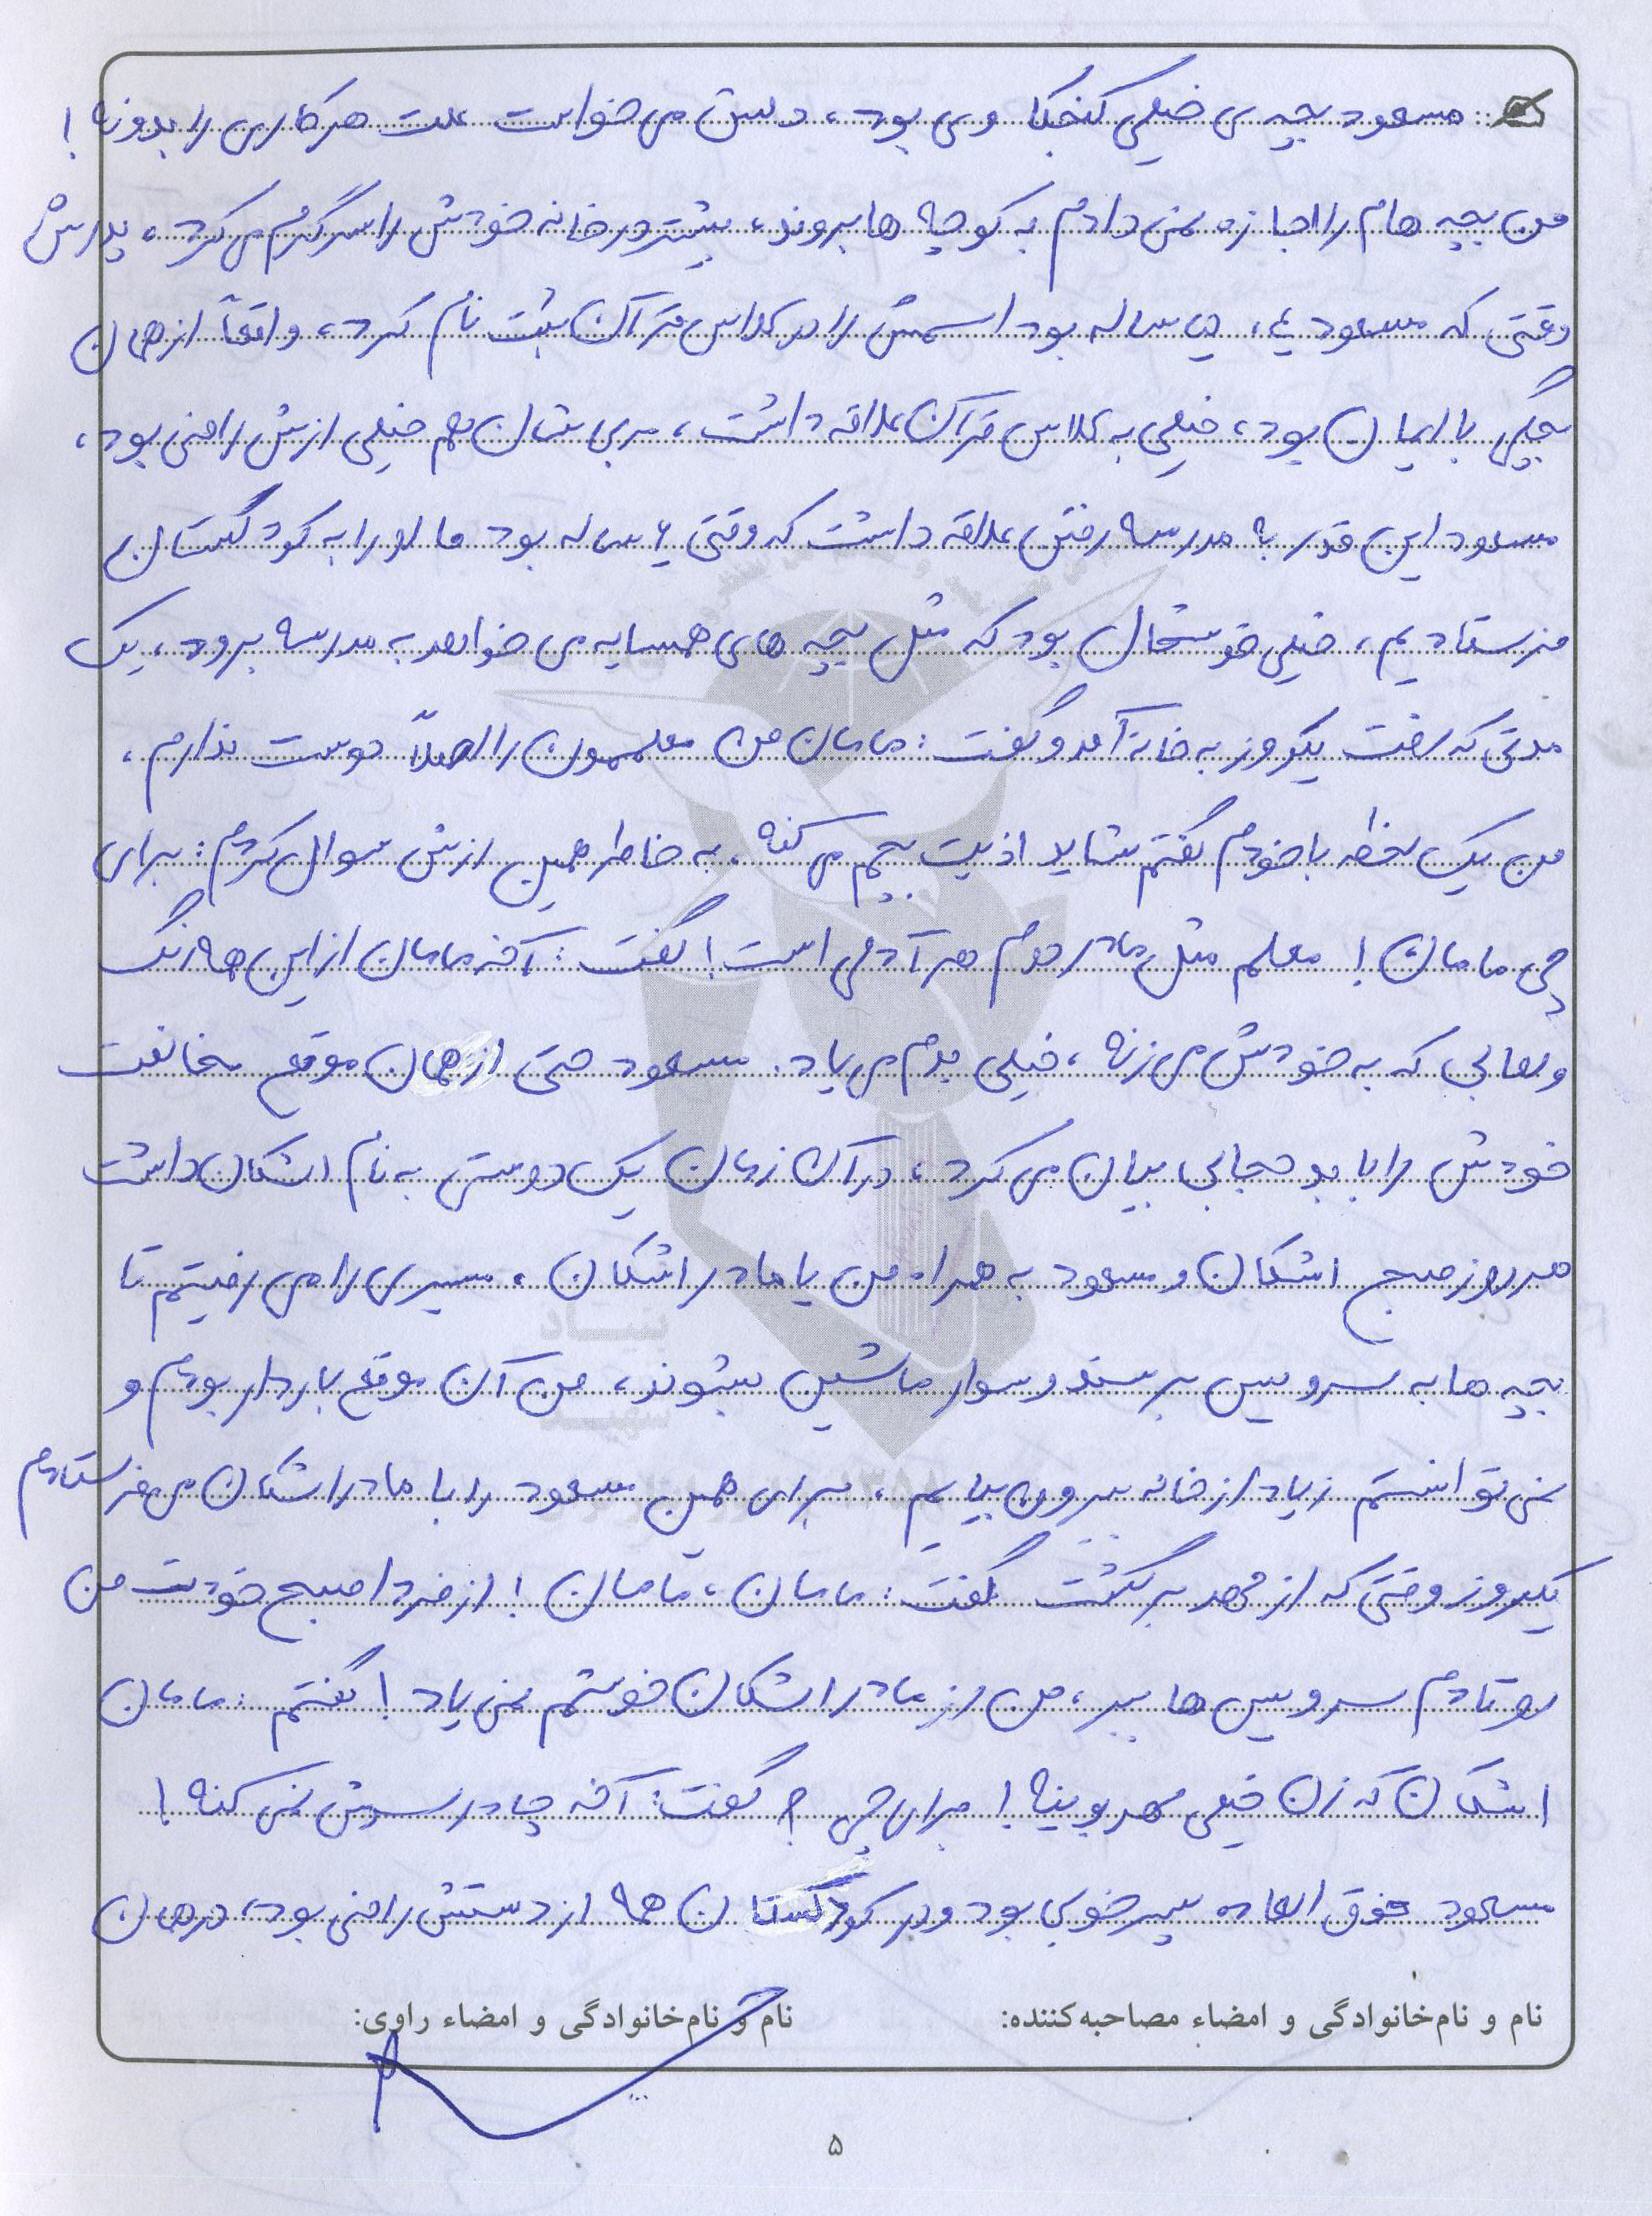 مسعود بچه ی خیلی کنجکاوی بود، دلش می خواست علت هر کاری را بدونه!
من بچه هام را اجازه نمی دادم به کوچه ها بروند، بیشتر در خانه خودش را سرگرم می کرد، پدرش
وقتی که مسعود ۴، ۵ ساله بود اسمش را در کلاس قرآن ثبت نام کرد، واقعاً از همان
بچگی با ایمان بود، خیلی به کلاس قرآن علاقه داشت، مربی شان هم خیلی ازش راضی بود،
مسعود این قدر به مدرسه رفتن علاقه داشت که وقتی ۶ ساله بود ما او را به کودکستان
فرستادیم، خیلی خوشحال بود که مثل بچه های همسایه می خواهد به مدرسه برود، یک
مدتی که رفت یکروز به خانه آمد و گفت: مامان من معلممون را اصلاً دوست ندارم،
من یک لحظه با خودم گفتم شاید اذیت بچم می کنه، به خاطر همین ازش سوال کردم: برای
چی مامان! معلم مثل مادر دوم هر آدمی است! گفت: آخه مامان از این ها رنگ
و لعابی که به خودش می زنه، خیلی بدم می یاد. مسعود حتی از همان موقع مخالفت
خودش را با بد حجابی بیان می کرد، در آن زمان یک دوستی به نام اشکان داشت
هر روز صبح اشکان و مسعود به همراه من یا مادر اشکان، مسیری را می رفتیم تا
بچه ها به سرویس برسند و سوار ماشین بشوند، من آن موقع باردار بودم و
نمی توانستم زیاد از خانه بیرون بیایم، برای همین مسعود را با مادر اشکان می فرستادم
یکروز وقتی که از مهد برگشت گفت: مامان، مامان! از فردا صبح خودت من
رو تا دم سرویس ها ببر، من از مادر اشکان خوشم نمی یاد! گفتم: مامان
اشکان که زن خیلی مهربونیه! برای چی؟ گفت: آخه چادر سرش نمی کنه!
مسعود فوق العاده پسر خوبی بود و در کودکستان همه از دستش راضی بود، در همان
نام و نام‌خانوادگی و امضاء مصاحبه‌کننده: نام و نام‌خانوادگی و امضاء راوی:
۵